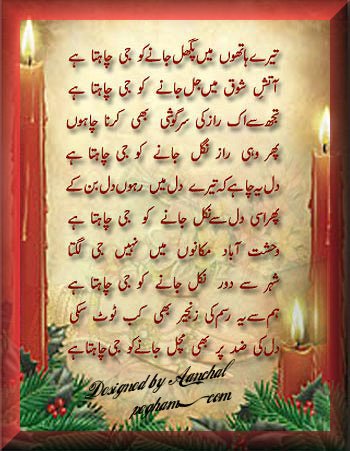 تیرے ہاتھوں میں پگھل جانے کو جی چاہتا ہے
آتشِ شوق میں جل جانے کو جی چاہتا ہے
تجھ سے اک راز کی سرگوشی بھی کرنا چاہوں
پھر وہی راز نگل جانے کو جی چاہتا ہے
دل یہ چاہے کہ تیرے دل میں رہوں دل بن کے
پھر اسی دل سے نکل جانے کو جی چاہتا ہے
وحشت آباد مکانوں میں نہیں جی لگتا
شہر سے دور نکل جانے کو جی چاہتا ہے
ہم سے یہ رسم کی زنجیر بھی کب ٹوٹ سکی
دل کی ضد پر بھی مچل جانے کو جی چاہتا ہے
Designed by Aanchal
pegham com